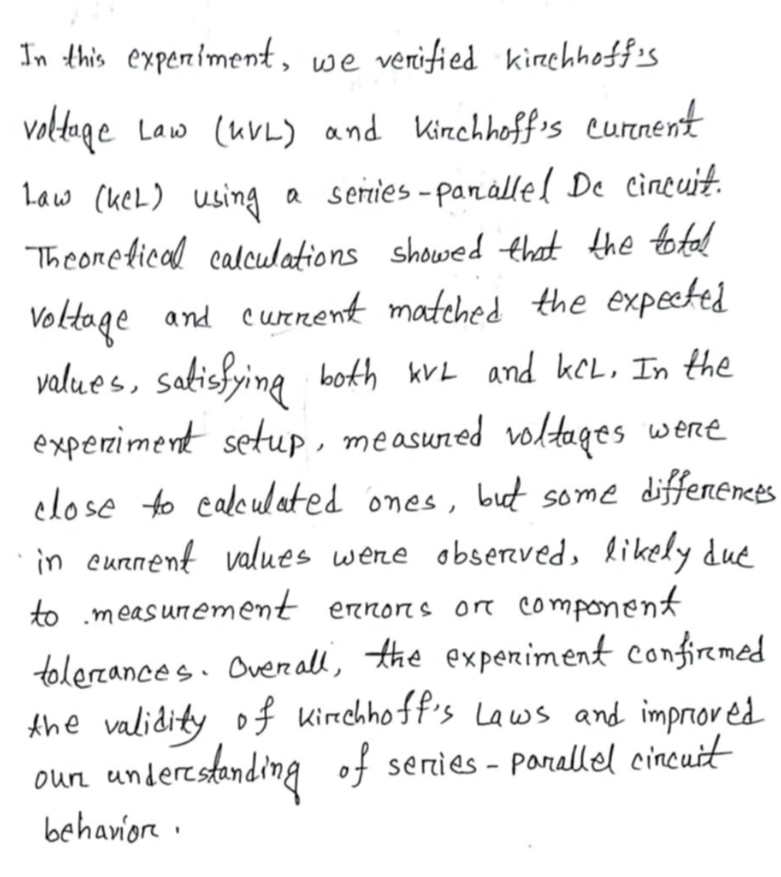 In this experiment, we verified kirchhoff's
voltage Law (KVL) and Kirchhoff's current
Law (KCL) using a series-parallel Dc circuit.
Theoretical calculations showed that the total
voltage and current matched the expected
values, satisfying both KVL and KCL. In the
experiment setup, measured voltages were
close to calculated ones, but some differences
in current values were observed, likely due
to measurement errors or component
tolerances. Overall, the experiment confirmed
the validity of Kirchhoff's Laws and improved
our understanding of series-parallel circuit
behavior.